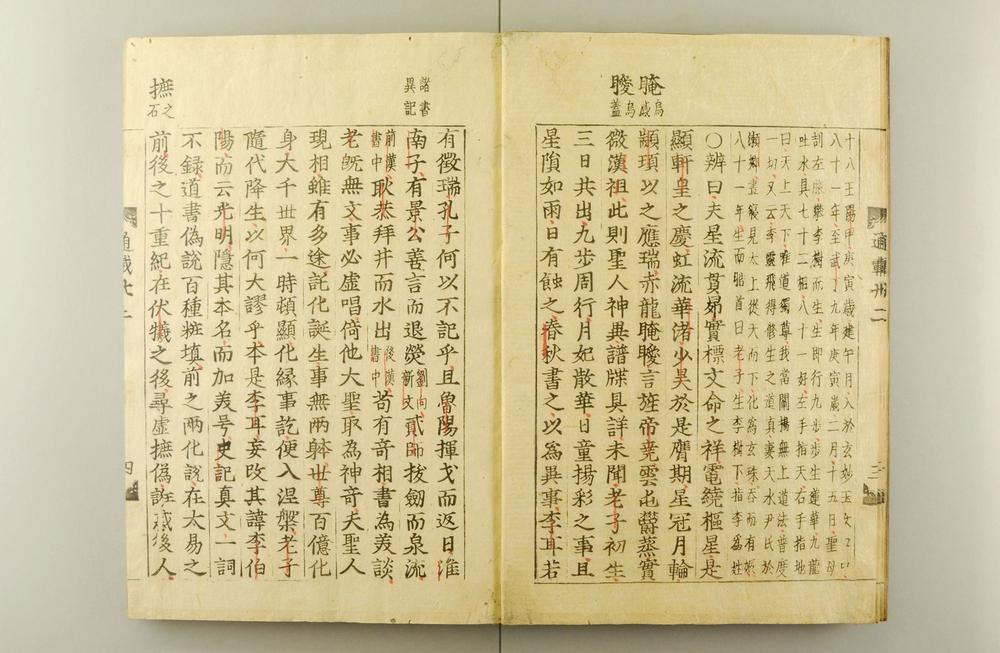 十八王陽甲庚寅歲建午月入於玄妙玉女口
八十一年至武丁九年庚寅歲二月十五日聖母
剖左腋攀李樹而生生即行九步步生蓮華九龍
吐水具七十二相八十一好左手指天右手指地
曰天上天下唯道獨尊我當闡揚無上道法普度
一切又云李靈飛得修生之道真妻天水尹氏於
瀨鄉晝寢見太上從天而下化為玄珠吞而有娠
八十一年生而皓首曰老子生李樹下指李為姓
〇辨曰夫星流貫昴實標文命之祥電繞樞星是
顯軒皇之慶虹流華渚少昊於是膺期星冠月輪
顓頊以之應瑞赤龍腌曖言旌帝堯雲屯鬱蒸實
徵漢祖此則聖人神異譜牒具詳未聞老子初生
三日共出九步周行月妃散華日童揚彩之事且
星隕如雨日有蝕之春秋書之以為異事李耳若
腌烏感
曖烏蓋
通載卅二
三
有徵瑞孔子何以不記乎且魯陽揮戈而返日淮
南子有景公善言而退熒劉向新文貳師拔劒而泉流
前漢書中耿恭拜井而水出後漢書中苟有奇相書為美談
老既無文事必虛唱倚他大聖取為神奇夫聖人
現相雖有多途託化誕生事無兩躰世尊百億化
身大千世界一時頓顯化緣事訖便入涅槃老子
隨代降生以何大謬乎本是李耳妄改其諱李伯
陽而云光明隱其本名而加美号史記真文一詞
不録道書偽說百種粧填前之兩化說在太易之
前後之十重紀在伏犧之後尋虛摭偽誑惑後人
諸書異記
摭之石
通載卅二
四